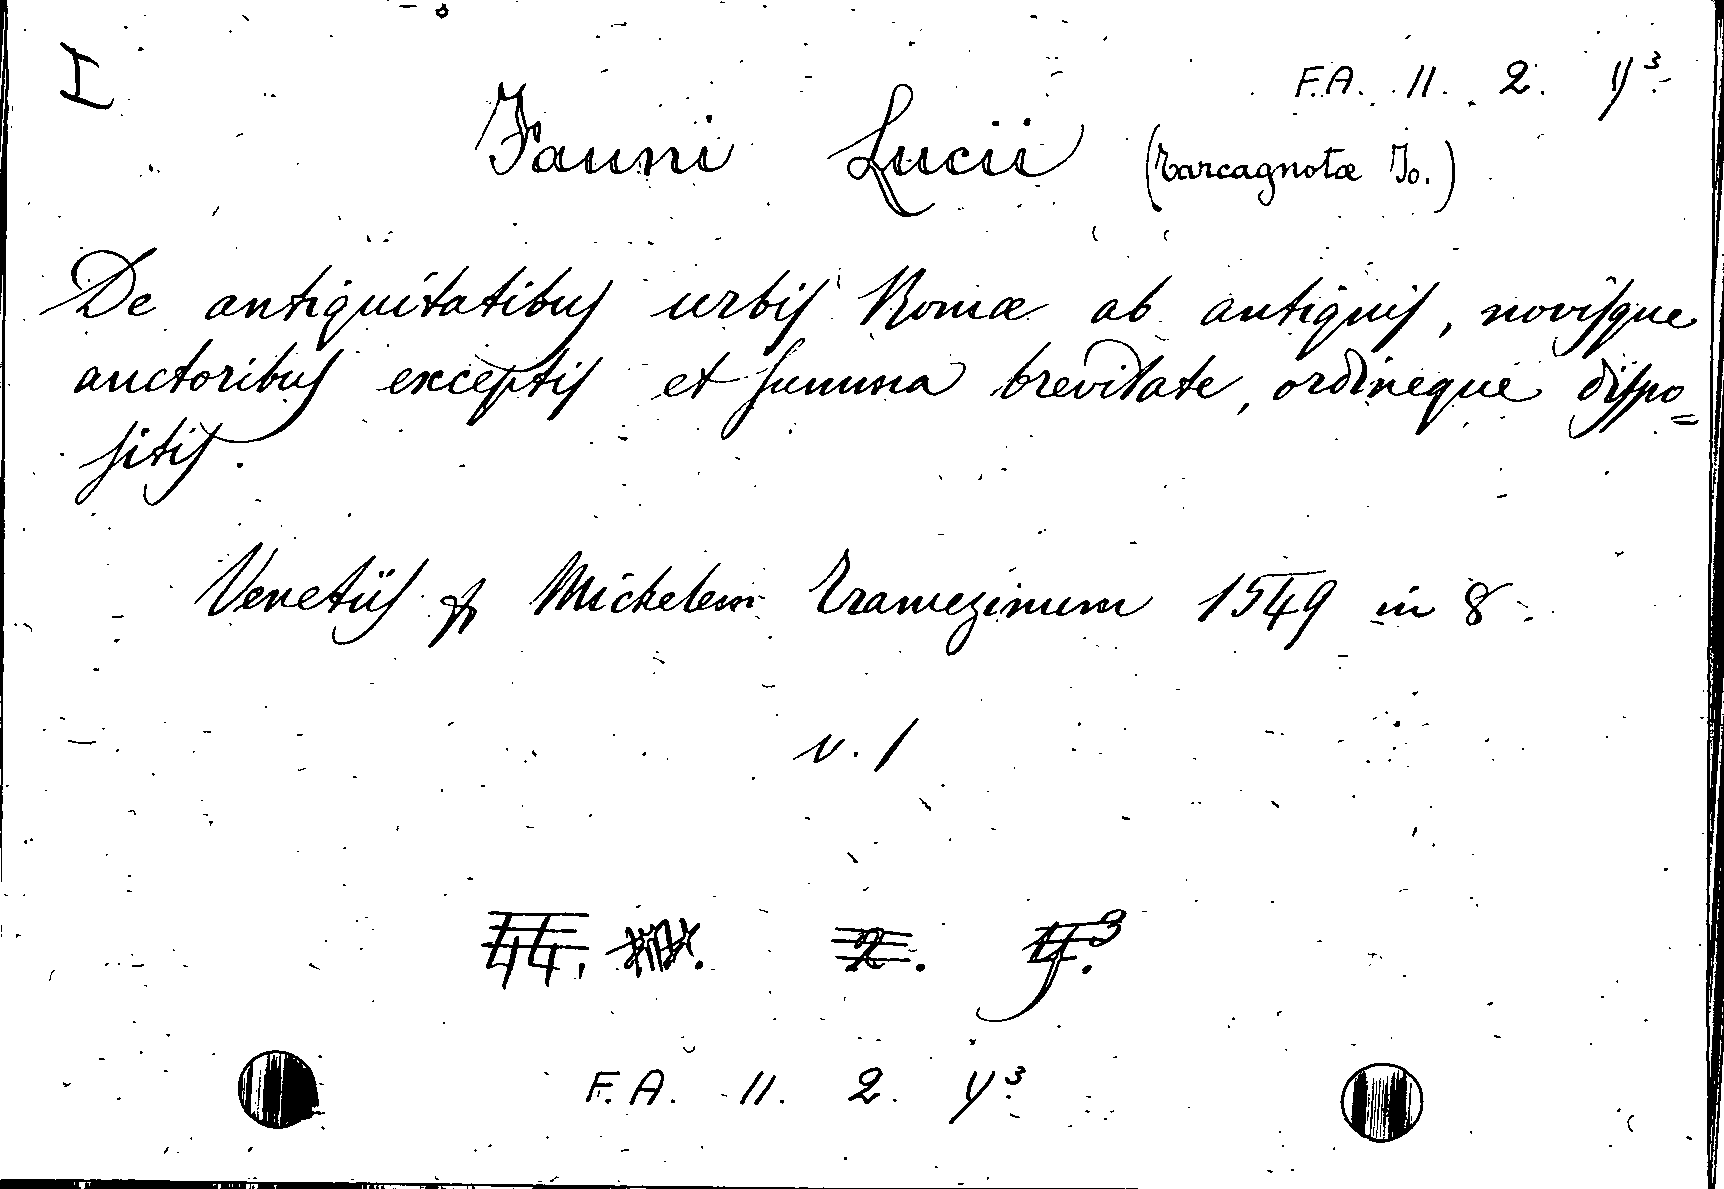 I
F.A. 11. 2. y³.
Fauni Lucii (Tarcagnotæ Jo.)
De antiquitatibus urbis Romæ ab antiquis, novisque
auctoribus exceptis et summa brevitate, ordineque dispo=
sitis.
Venetiis Michelem Tramezinum 1549 in 8.
v. 1
44. 2. y.³
F.A. 11. 2. y³.